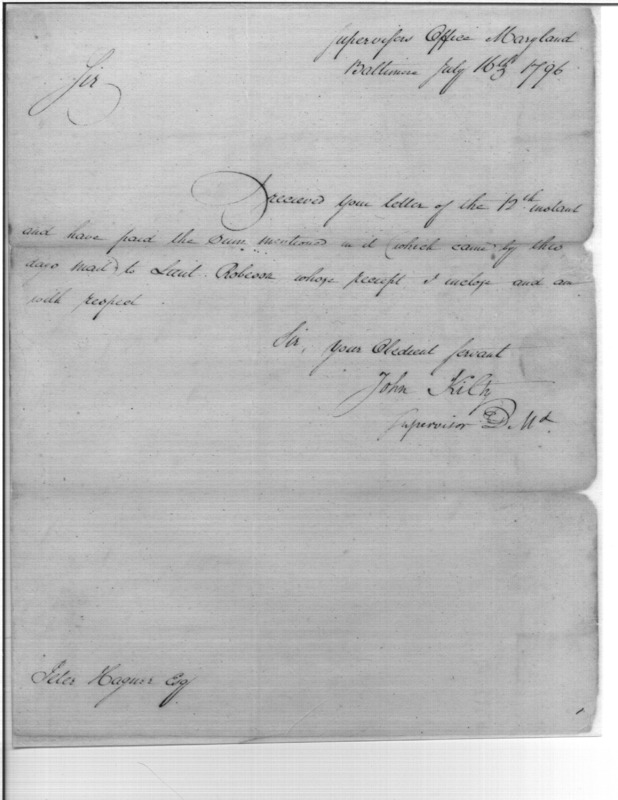 Supervisors Office Maryland
Baltimore July 16th 1796
Sir
I recieved your letter of the 12th instant
and have paid the sum mentioned in it (which came by this
days mail) to Lieut. Robeson whose receipt I inclose and am
with respect
Sir, your Obedient servant
John Kilty
Supervisor D. Md.
Peter Hagner Esq